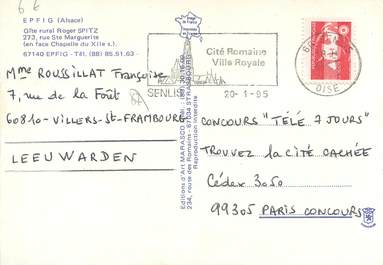 6 €
EPFIG (Alsace)
Gîte rural Roger SPITZ
273, rue Ste Marguerite
(en face Chapelle du XIIe s.)
67140 EPFIG - Tél. (88) 85.51.63
Mme ROUSSILLAT Françoise
7, rue de la Forêt
60810 - VILLERS-St-FRAMBOURG
LEEUWARDEN
Editions d'Art MARASCO
234, route des Romains - 67034 STRASBOURG
Reproduction interdite
Cité Romaine
Ville Royale
SENLIS
20-1-95
OISE
CONCOURS "TÉLÉ 7 JOURS"
TROUVEZ LA CITÉ CACHÉE
Cédex 3050
99305 PARIS CONCOURS